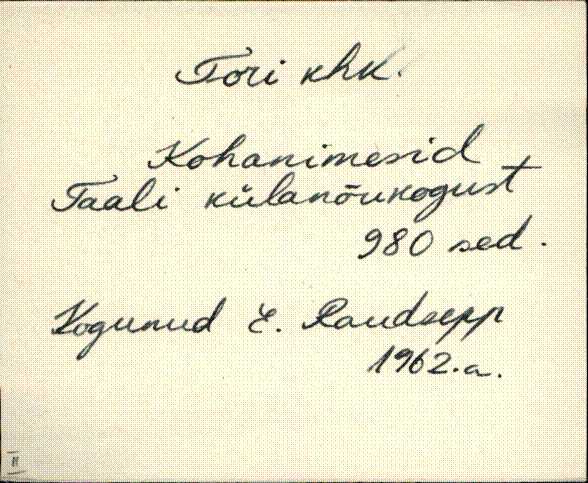 Tori khk.
Kohanimesid
Taali külanõukogust
980 sed.
Kogunud E. Raudsepp
1962.a.
II